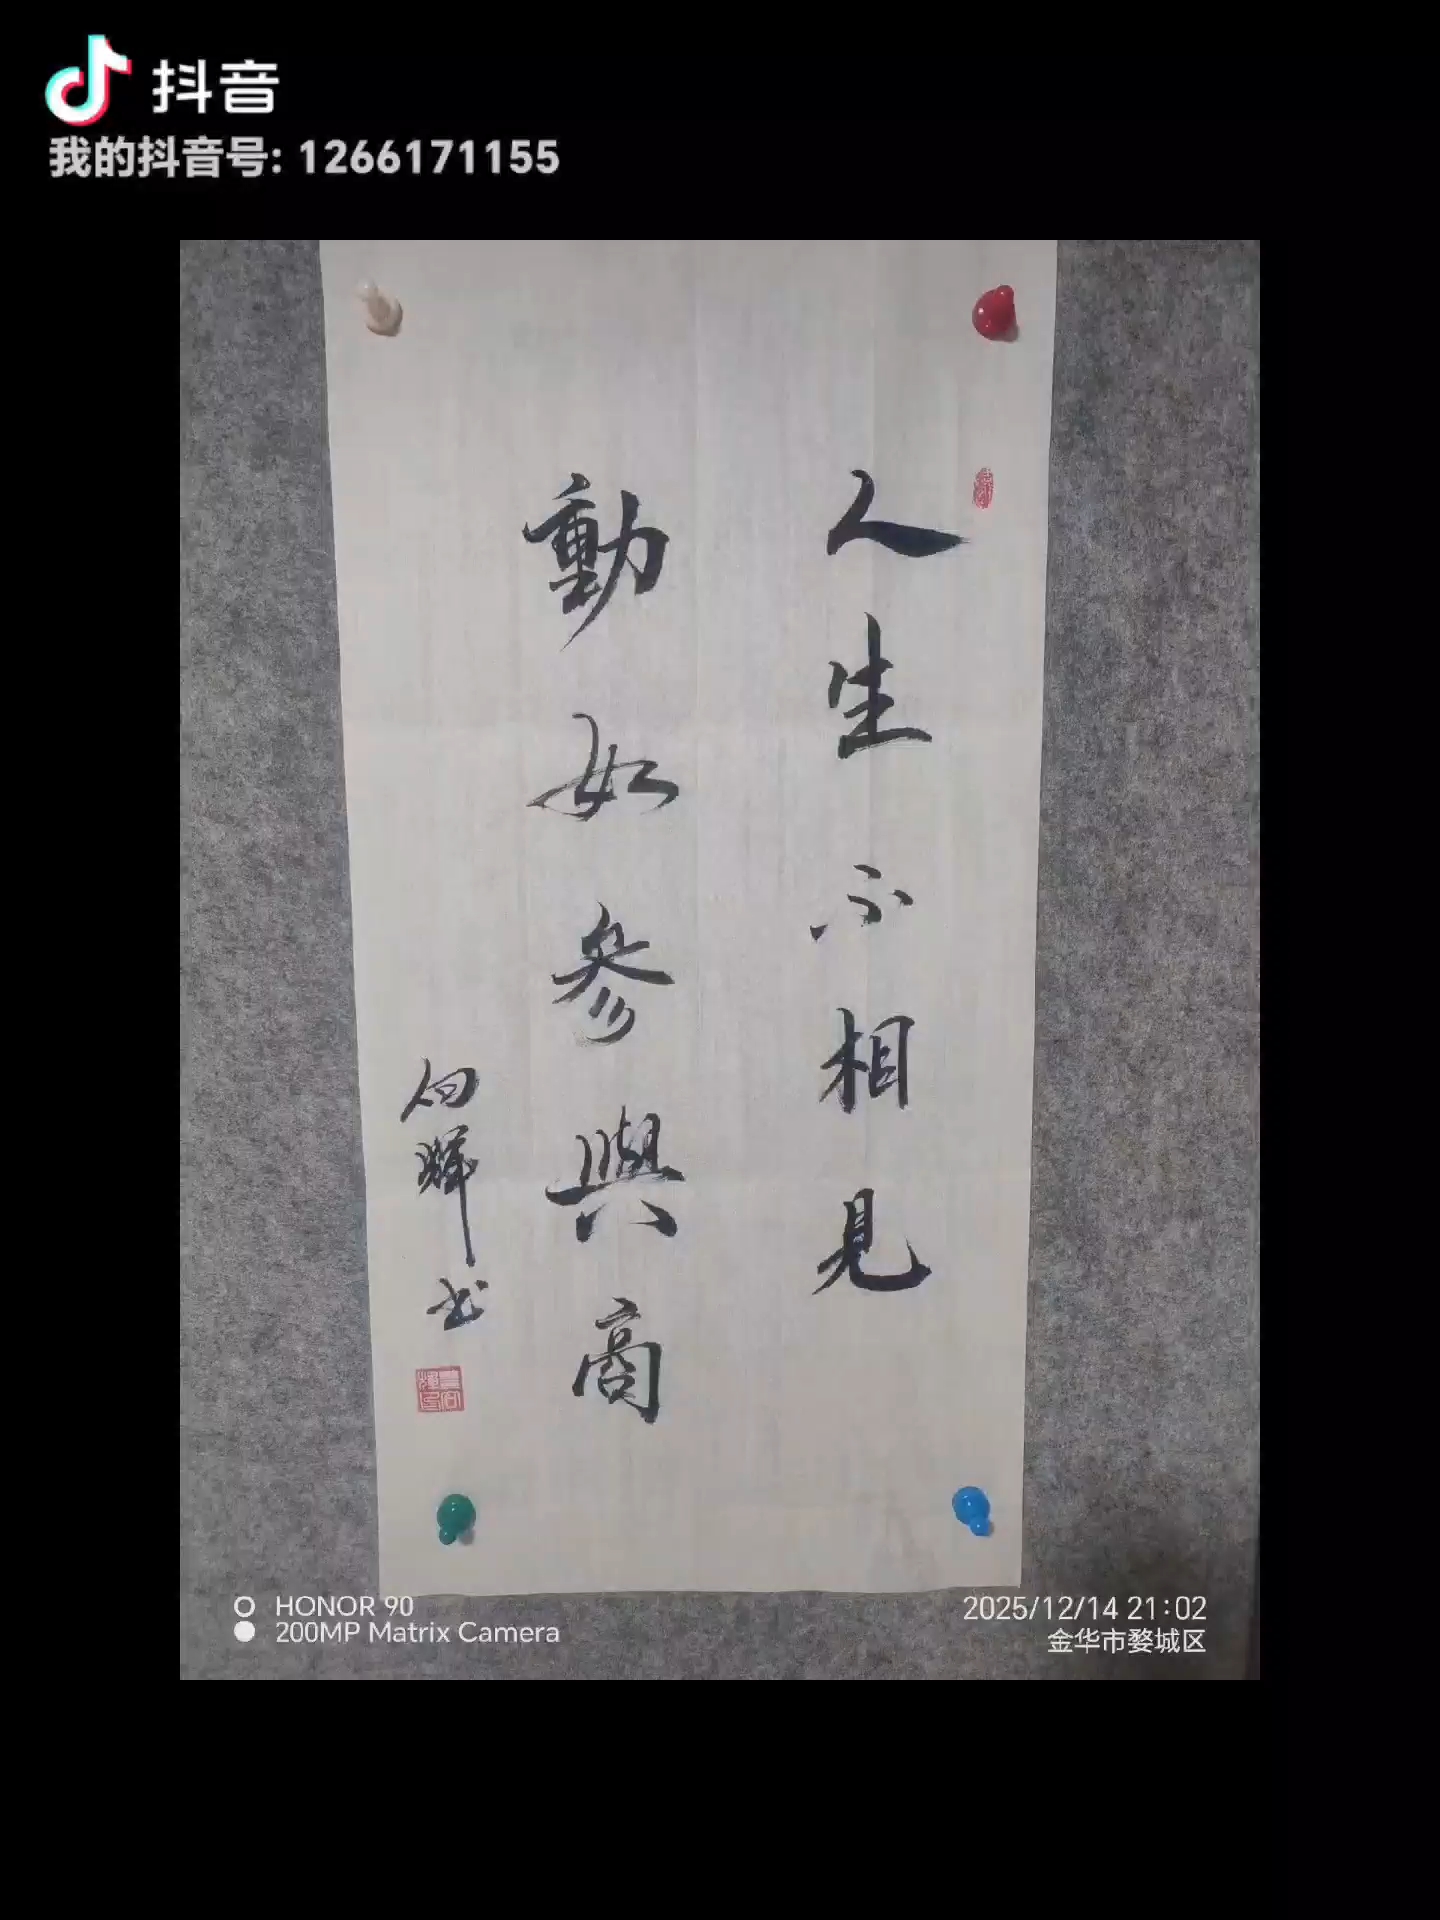 抖音
我的抖音号: 1266171155
人生不相見
動如參與商
向輝书
HONOR 90
200MP Matrix Camera
2025/12/14 21:02
金华市婺城区